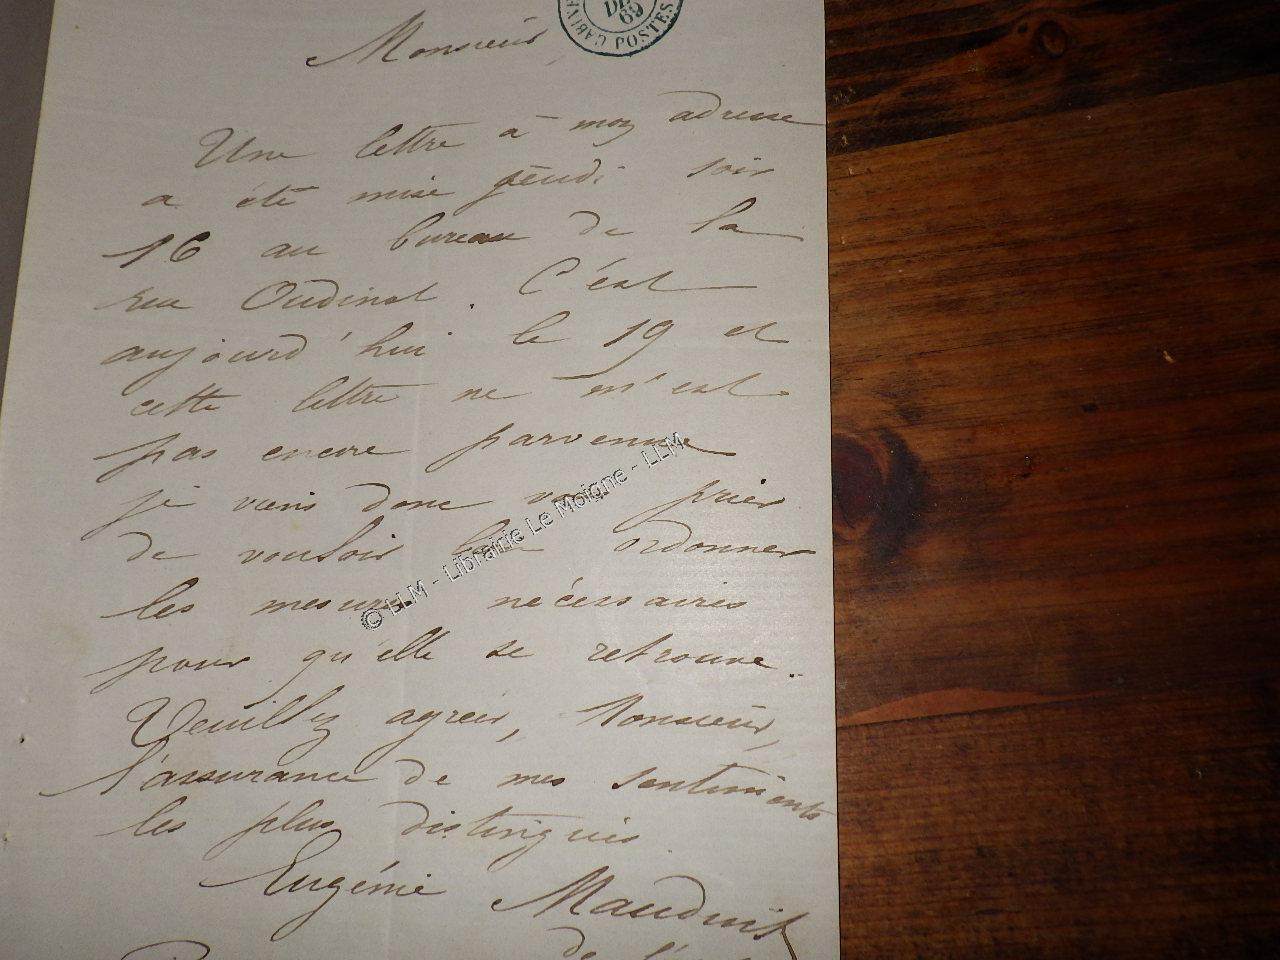 DE
69
CABINE POSTES
Monsieur,
Une lettre à mon adresse
a été mise jeudi soir
16 au bureau de la
rue Oudinot. C'est
aujourd'hui le 19 et
cette lettre ne m'est
pas encore parvenue
je viens donc vous prier
de vouloir bien ordonner
les mesures nécessaires
pour qu'elle se retrouve.
Veuillez agréer, Monsieur,
l'assurance de mes sentiments
les plus distingués
Eugénie Mauduit
de
© LLM - Librairie Le Moigne - LLM